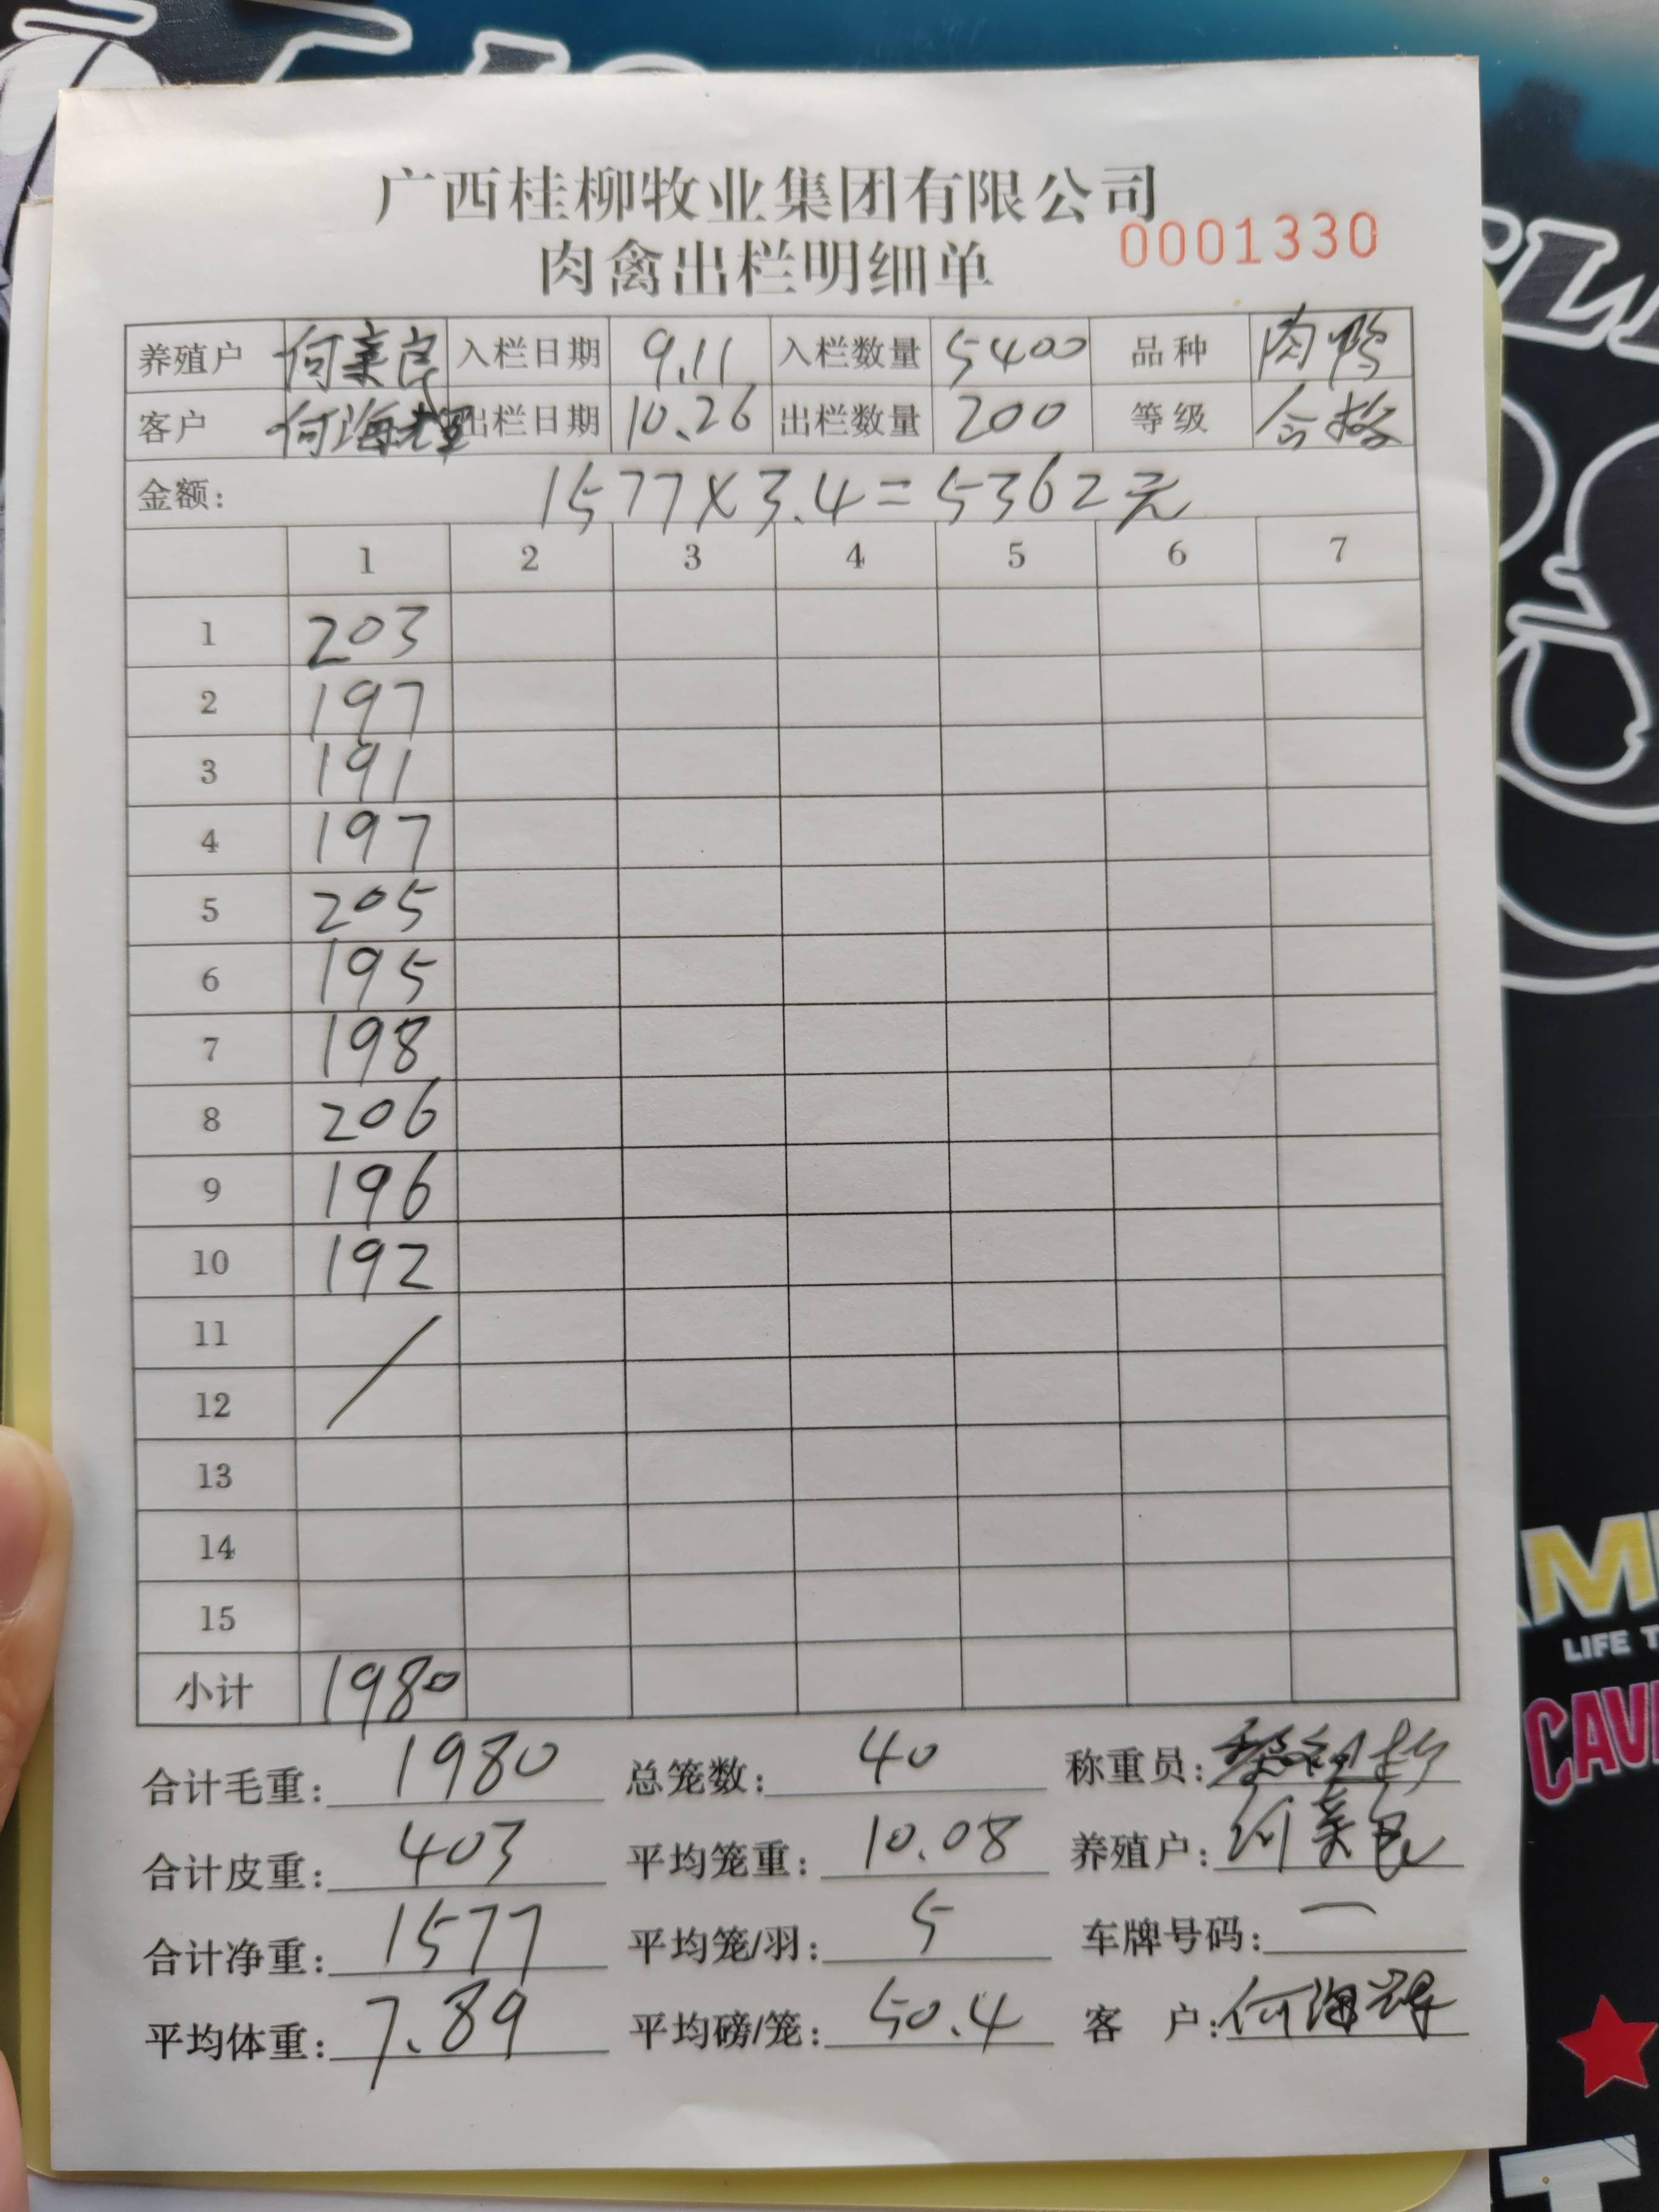 广西桂柳牧业集团有限公司
肉禽出栏明细单 0001330
养殖户 何美良 入栏日期 9.11 入栏数量 5400 品种 肉鸭
客户 何海 出栏日期 10.26 出栏数量 200 等级 合格
金额: 1577×3.4=5362元
1 2 3 4 5 6 7
1 203
2 197
3 191
4 197
5 205
6 195
7 198
8 206
9 196
10 192
11 /
12
13
14
15
小计 1980
合计毛重: 1980 总笼数: 40 称重员:
合计皮重: 403 平均笼重: 10.08 养殖户: 何美良
合计净重: 1577 平均笼/羽: 5 车牌号码: 一
平均体重: 7.89 平均磅/笼: 50.4 客 户: 何海辉
LIFE T